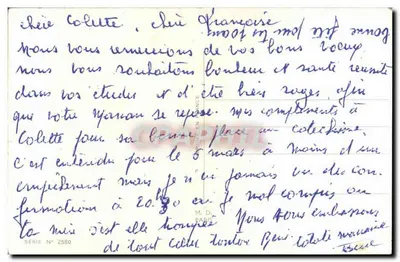 chère Colette, chère Françoise
Nous vous remercions de vos bons voeux
nous vous souhaitons bonheur et santé réussite
dans vos études et d'être bien sages afin
que votre Maman se repose, mes compliments à
Colette pour sa bonne place au catéchisme.
c'est entendu pour le 5 mars à moins d'un
empêchement mais je n'ai jamais vu de con
firmation à 20.30 ai je mal compris ou
la mère s'est elle trompée
Nous vous embrassons
de tout coeur tonton
Bonne fête pour
SERIE N° 2580